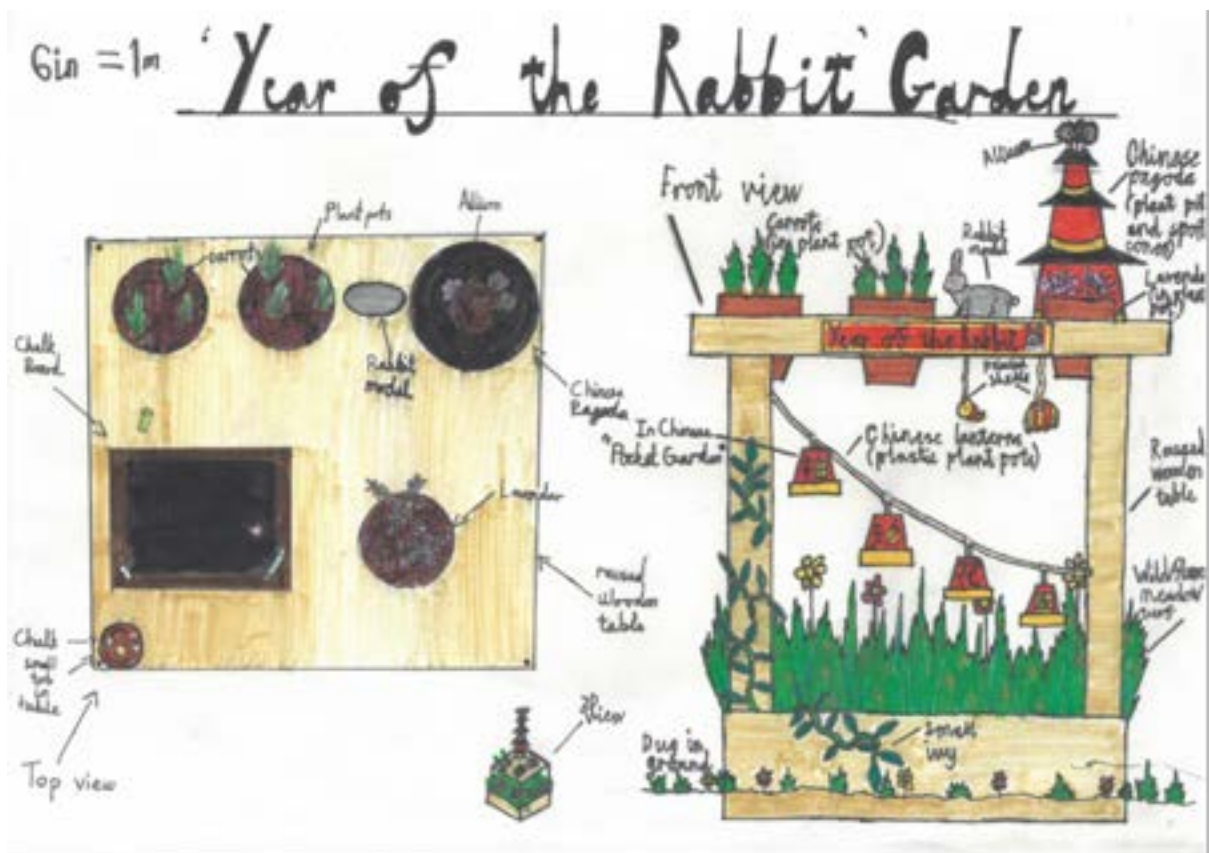 6in = 1m
'Year of the Rabbit' Garden
Plant pots
Allium
carrots
Chalk
Board
Rabbit
model
Chinese
Pagoda
Lavender
reused
wooden
table
Chalk
small
table
Top view
View
Front view
Carrots
(in plant pot)
Rabbit
model
Allium
Chinese
pagoda
(plant pot
and
Lavender
(in plant
pot)
Year of the Rabbit
In Chinese
"Pocket Garden"
Chinese lanterns
(plastic plant pots)
Reused
wooden
table
meadow
Dug in
ground
small
ivy